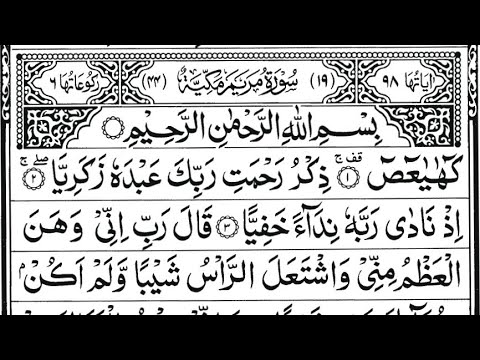 اٰيَاتُهَا ٩٨ (١٩) سُوْرَةُ مَرْيَمَ مَكِّيَّةٌ (٤٤) رُكُوْعَاتُهَا ٦
بِسْمِ اللّٰهِ الرَّحْمٰنِ الرَّحِيْمِ
كٓهٰيٰعٓصٓ ۚقف ١ ذِكْرُ رَحْمَتِ رَبِّكَ عَبْدَهٗ زَكَرِيَّا ۖۚ ٢
اِذْ نَادٰى رَبَّهٗ نِدَآءً خَفِيًّا ٣ قَالَ رَبِّ اِنِّيْ وَهَنَ
الْعَظْمُ مِنِّيْ وَاشْتَعَلَ الرَّاْسُ شَيْبًا وَّلَمْ اَكُنْۢ